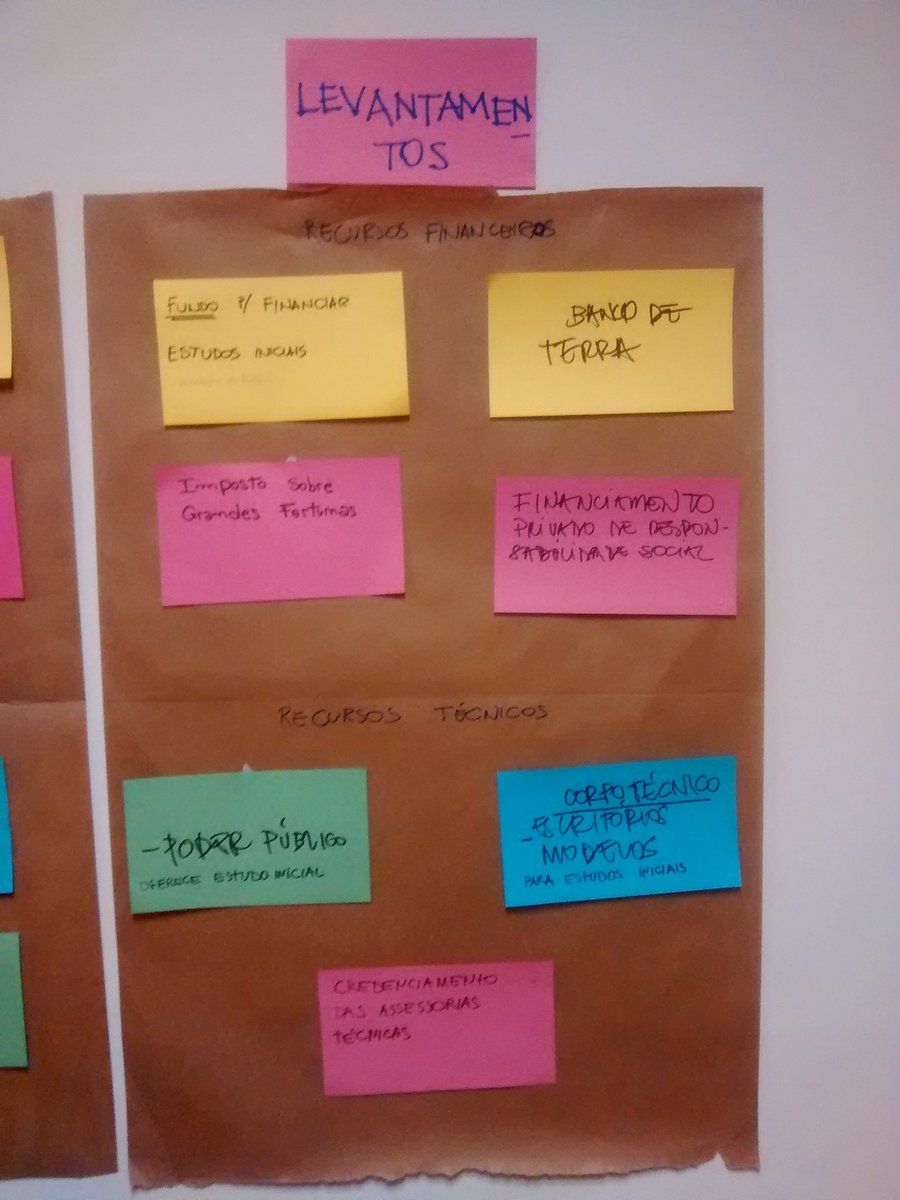 LEVANTAMEN
TOS
RECURSOS FINANCEIROS
FUNDO P/ FINANCIAR
ESTUDOS INICIAIS
BANCO DE
TERRA
Imposto Sobre
Grandes Fortunas
FINANCIAMENTO
PRIVADO DE RESPON-
SABILIDADE SOCIAL
RECURSOS TÉCNICOS
- PODER PÚBLICO
OFERECE ESTUDO INICIAL
CORPO TÉCNICO
- ESCRITÓRIOS
MODELOS
PARA ESTUDOS INICIAIS
CREDENCIAMENTO
DAS ASSESSORIAS
TÉCNICAS